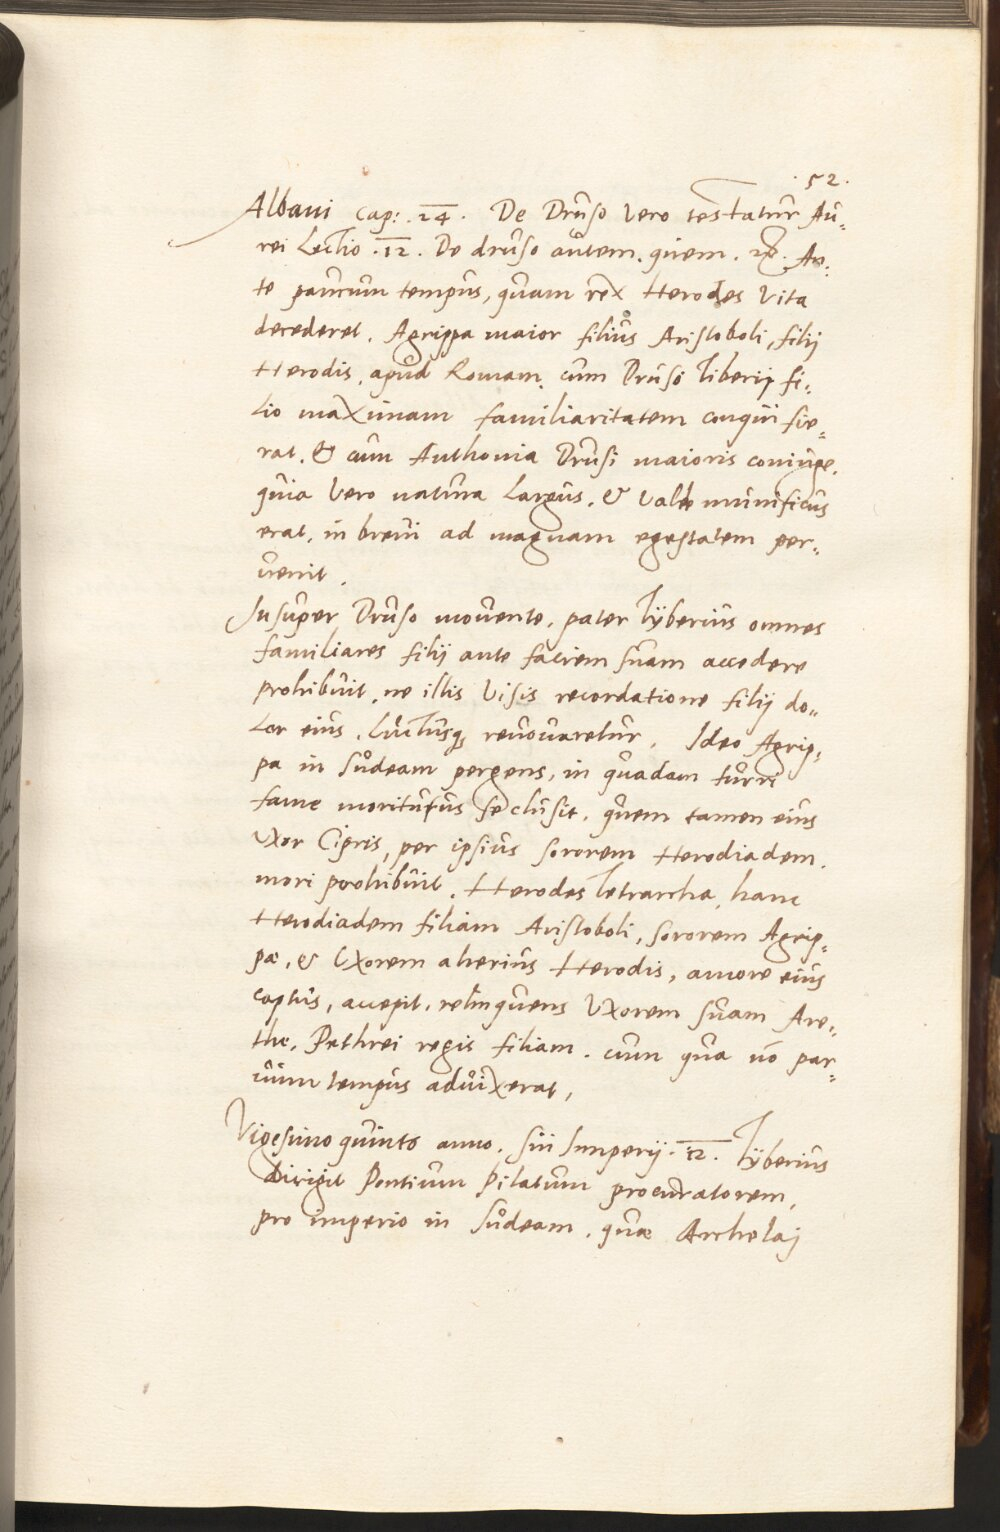 . 52 .
Albani cap: .24. De Druso vero testatur Au„
rei Lectio .12. De druso autem. quem. &. An„
te paucum tempus, quam rex Herodes vita
decederet. Agrippa maior filius Aristoboli, filij
Herodis, apud Romam. cum Drusi Tiberij fi„
lio maximam familiaritatem conquisie„
rat. & cum Anthonia Drusi maioris coniuge.
quia vero natura largus. & valde munificus
erat. in brevi ad magnam egestatem per„
venit.
Insuper Druso movente. pater Tyberius omnes
familiares filij ante faciem suam accedere
prohibuit, ne illis visis recordatione filij do„
lor eius. luctusq, renovaretur. Ideo Agrip„
pa in Iudeam pergens, in quadam turri
fame moriturus se clusit. quem tamen eius
uxor Cipris, per ipsius sororem Herodiadem.
mori prohibuit. Herodes Tetrarcha, hanc
Herodiadem filiam Aristoboli, sororem Agrip„
pæ, & uxorem alterius Herodis, amore eius
captus, accepit. relinquens uxorem suam Are„
the, Pethrei regis filiam. cum qua nō par„
vum tempus aduixerat,
Vigesimo quinto anno. sui Imperij .12. Tyberius
dirigit Pontium Pilatum procuratorem,
pro imperio in Iudeam. quæ Archelaj